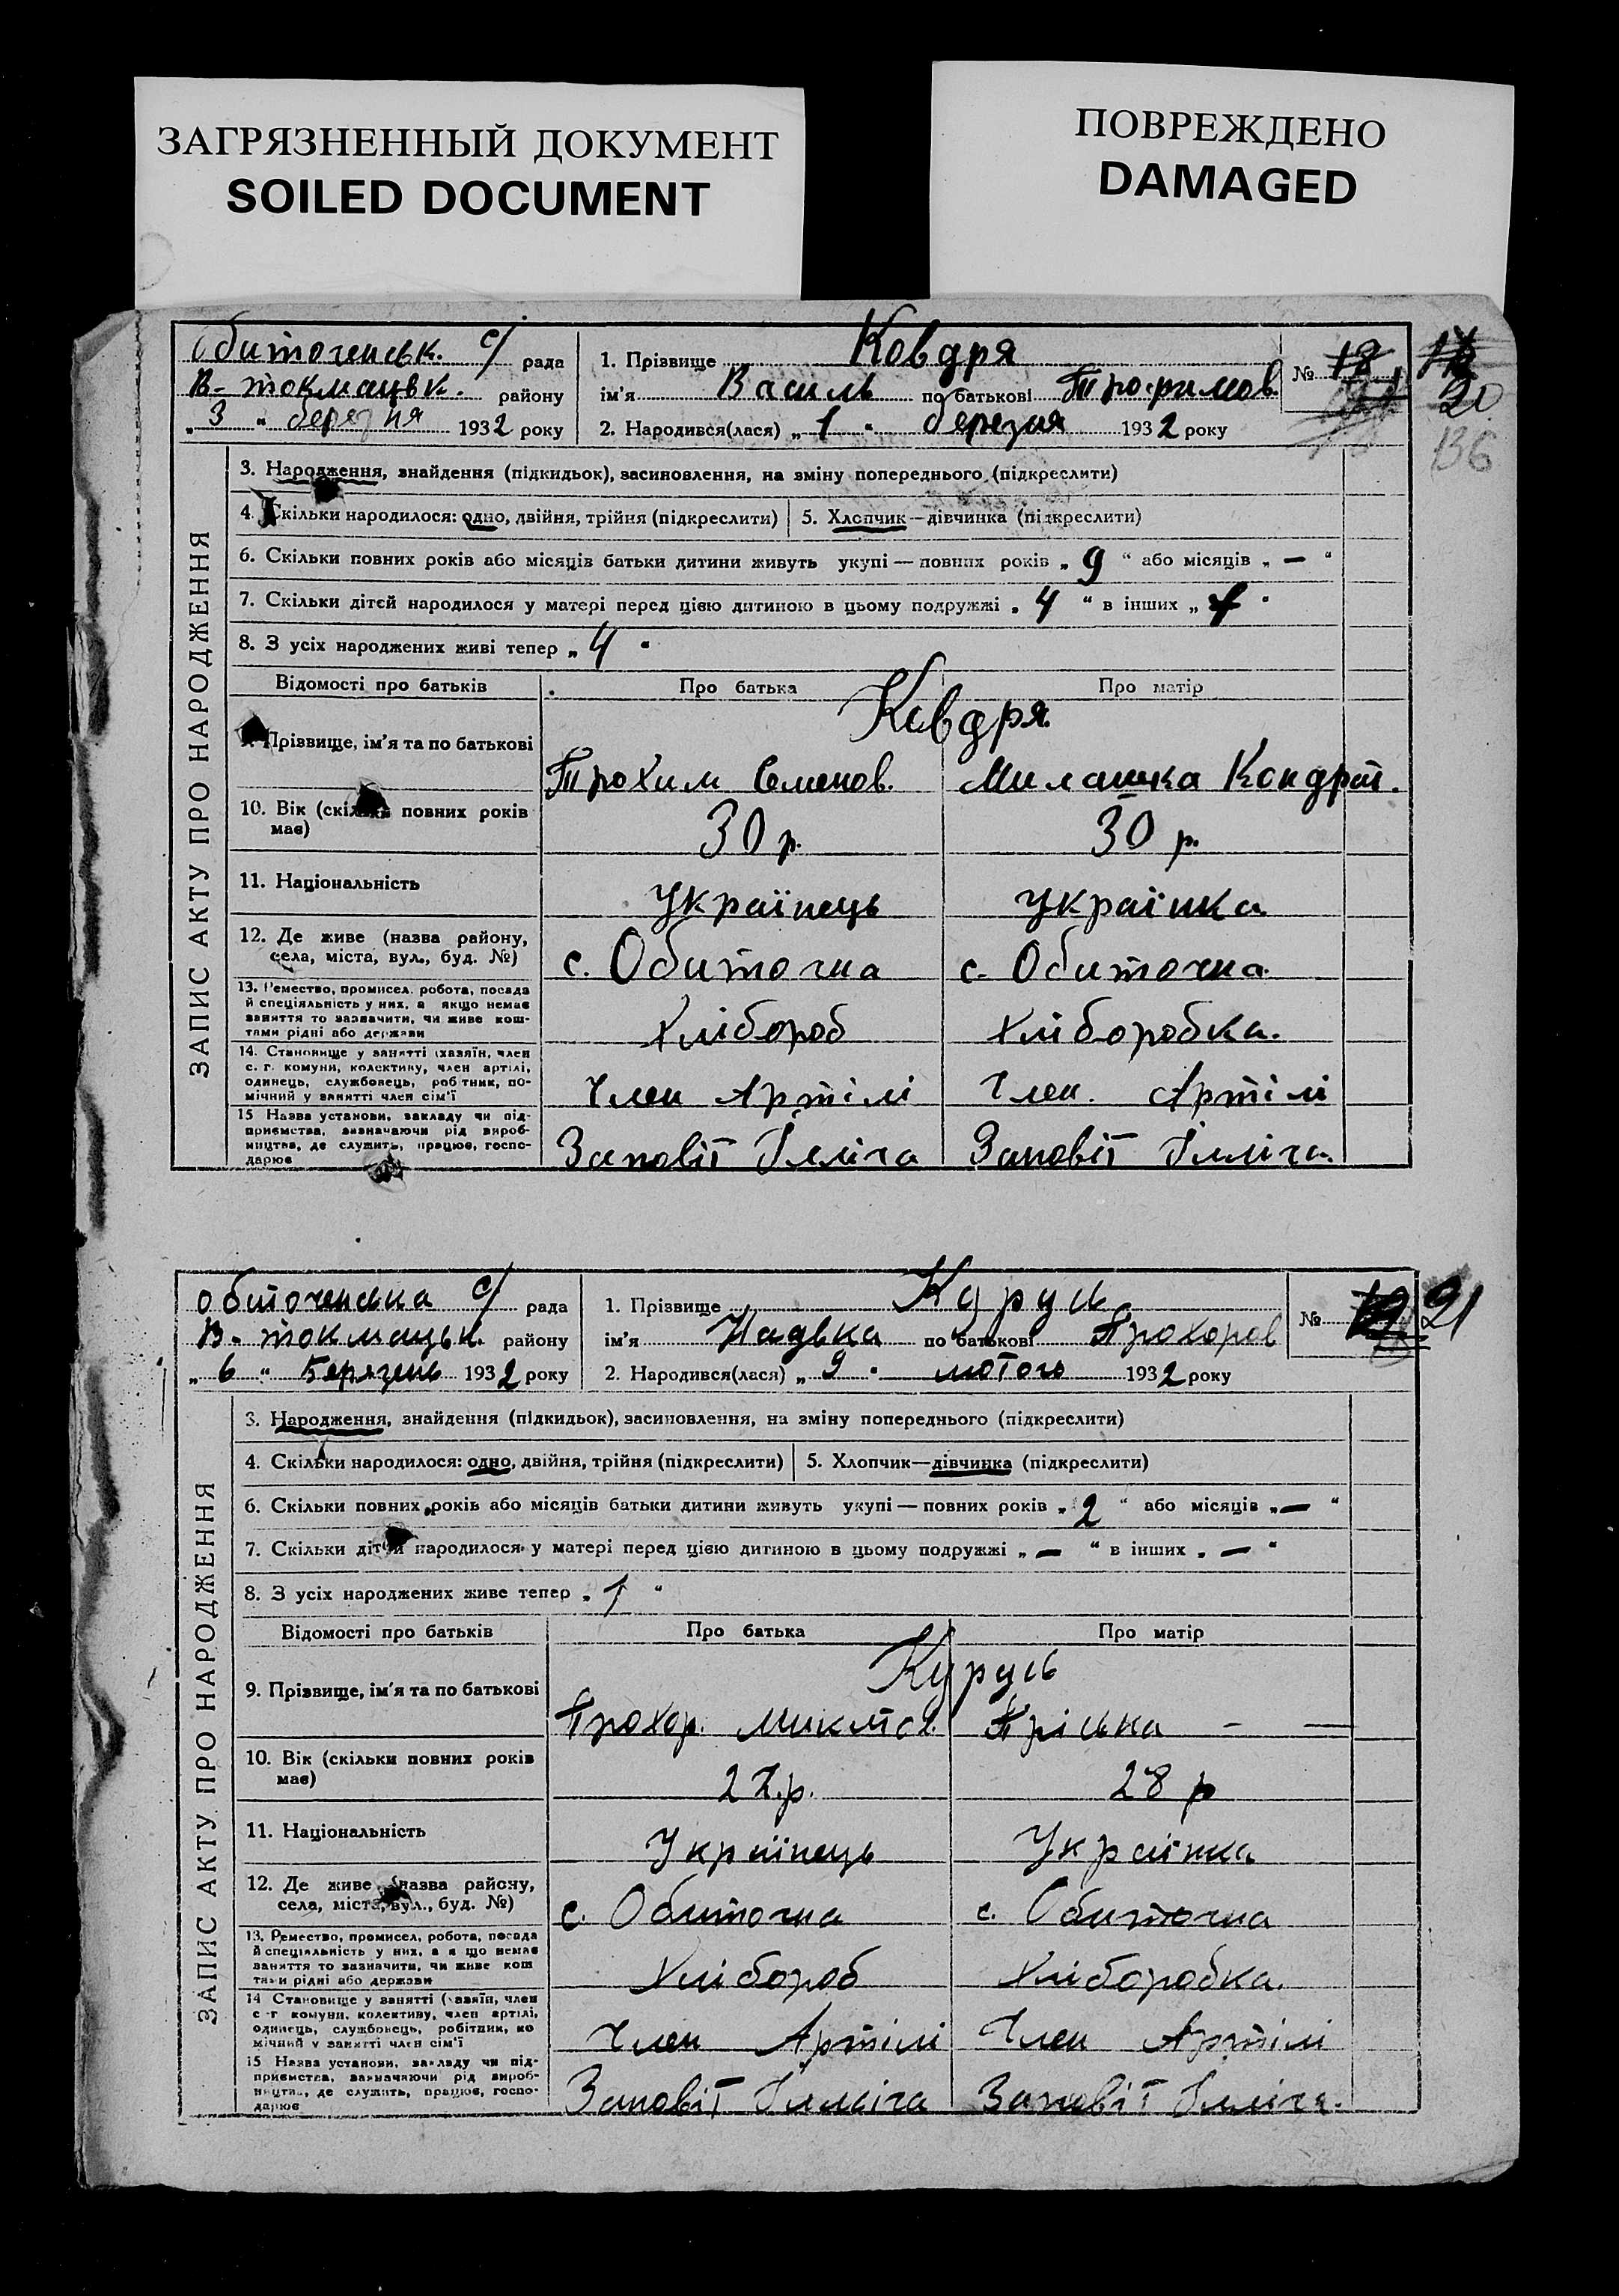 ЗАГРЯЗНЕННЫЙ ДОКУМЕНТ
SOILED DOCUMENT
ПОВРЕЖДЕНО
DAMAGED
Обиточенськ. с/ рада
В-токмацьк. району
„3“ березня 1932 року
1. Прізвище Ковдря
ім'я Василь по батькові Трофимов.
2. Народився(лася) „1“ березня 1932 року
№ 18
20
136
ЗАПИС АКТУ ПРО НАРОДЖЕННЯ
3. Народження, знайдення (підкидьок), засиновлення, на зміну попереднього (підкреслити)
4. Скільки народилося: одно, двійня, трійня (підкреслити)
5. Хлопчик—дівчинка (підкреслити)
6. Скільки повних років або місяців батьки дитини живуть укупі — повних років „9“ або місяців „—“
7. Скільки дітей народилося у матері перед цією дитиною в цьому подружжі „4“ в інших „
8. З усіх народжених живі тепер „4“
Відомості про батьків Про батька Про матір
Ковдря
9. Прізвище, ім'я та по батькові
Трохим Семенов. Милашка Кондрат.
10. Вік (скільки повних років має) 30 р. 30 р.
11. Національність Українець Українка
12. Де живе (назва району, села, міста, вул., буд. №) с. Обиточна с. Обиточна
13. Ремество, промисел, робота, посада
й спеціяльність у них, а якщо немає
заняття то зазначити, чи живе кош-
тами рідні або держави
Хлібороб Хліборобка.
14. Становище у занятті (хазяїн, член
с. г. комуни, колективу, член артілі,
одинець, службовець, робітник, по-
мічний у занятті член сім'ї
Член Артілі Член. Артілі
15 Назва установи, закладу чи під-
приємства, зазначаючи рід вироб-
ництва, де служить, працює, госпо-
дарює
Заповіт Ілліча Заповіт Ілліча.
Обиточенська с/ рада
В-токмацьк. району
„6“ Березень 1932 року
1. Прізвище Курусь
ім'я Надька по батькові Прохоров
2. Народився(лася) „9“ лютого 1932 року
№
21
ЗАПИС АКТУ ПРО НАРОДЖЕННЯ
3. Народження, знайдення (підкидьок), засиновлення, на зміну попереднього (підкреслити)
4. Скільки народилося: одно, двійня, трійня (підкреслити)
5. Хлопчик—дівчинка (підкреслити)
6. Скільки повних років або місяців батьки дитини живуть укупі — повних років „2“ або місяців „—“
7. Скільки дітей народилося у матері перед цією дитиною в цьому подружжі „—“ в інших „—“
8. З усіх народжених живе тепер „1“
Відомості про батьків Про батька Про матір
Курусь
9. Прізвище, ім'я та по батькові
Прохор. Микитов. Пріська — —
10. Вік (скільки повних років має) 27.р. 28 р
11. Національність Українець Українка
12. Де живе (назва району, села, міста, вул., буд. №) с. Обиточна с. Обиточна
13. Ремество, промисел, робота, посада
й спеціяльність у них, а якщо немає
заняття то зазначити, чи живе кош
тами рідні або держави
Хлібороб Хліборобка.
14 Становище у занятті (хазяїн, член
с-г комуни, колективу, член артілі,
одинець, службовець, робітник, по
мічний у занятті член сім'ї
Член Артілі Член Артілі
15 Назва установи, закладу чи під-
приємства, зазначаючи рід вироб-
ництва, де служить, працює, госпо-
дарює
Заповіт Ілліча Заповіт Ілліча.